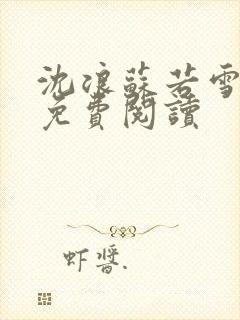 沈浪蘇若雪
免費閱讀
虾醬.